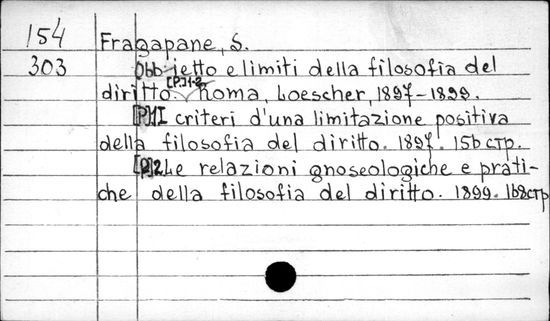 154 Fragapane, S.
303 Obbietto e limiti della filosofia del
diritto. [P.]1-2 Roma, Loescher, 1897-1899.
[P.]1 I criteri d'una limitazione positiva
della filosofia del diritto. 1897. 156 стр.
[P.]2 Le relazioni gnoseologiche e prati-
che della filosofia del diritto. 1899. 168 стр